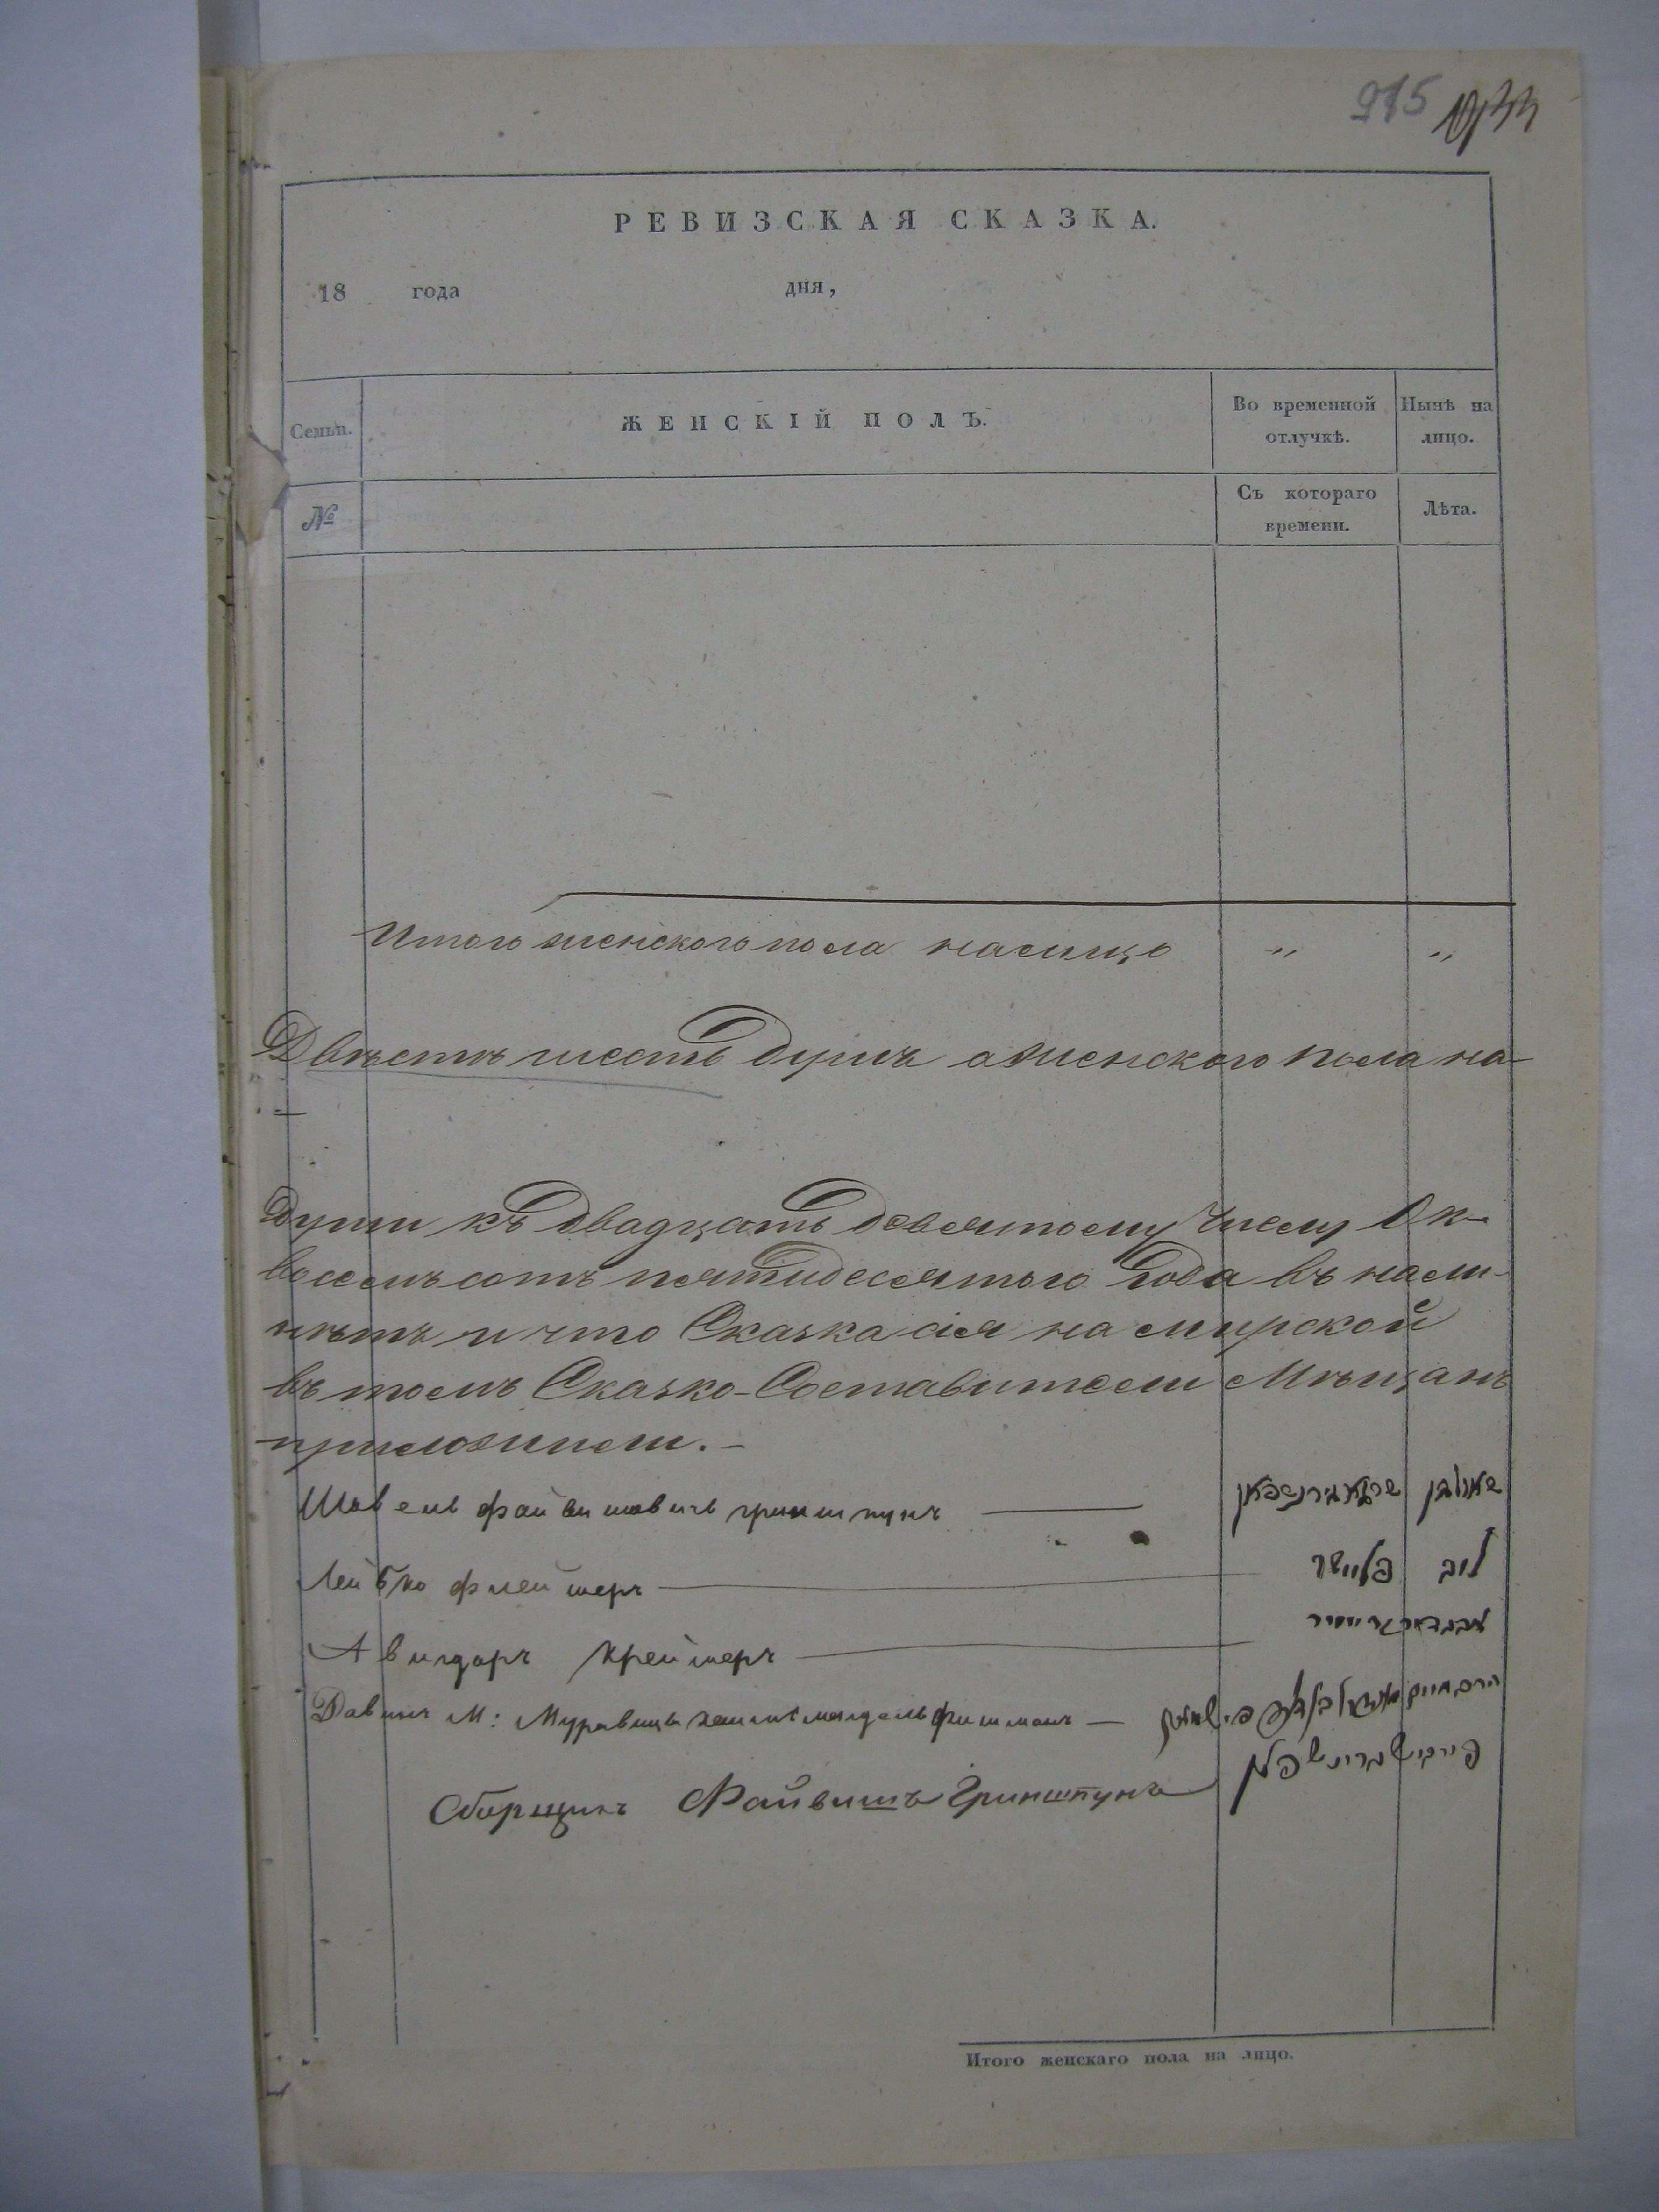 975
РЕВИЗСКАЯ СКАЗКА.
18 года дня,
Семьи. ЖЕНСКІЙ ПОЛЪ. Во временной отлучкѣ. Нынѣ на лицо.
№ Съ котораго времени. Лѣта.
Итого женского пола налицо " "
Двѣстѣ шесть душъ а женского пола на-
души къ двадцать девятому числу Ок-
восемьсотъ пятидесятого года въ нали-
нѣтъ и что Сказка сія на мирской
въ томъ Сказко-Составители Мѣщанъ
приложили.-
Шовель Файвишовичъ гриншпунъ שאול בן
Лейбко флейшеръ ליב פליישר
Авигдоръ Крейшеръ
Давидъ М: фишманъ
Сборщикъ Файвишъ Гриншпунъ
Итого женскаго пола на лицо.